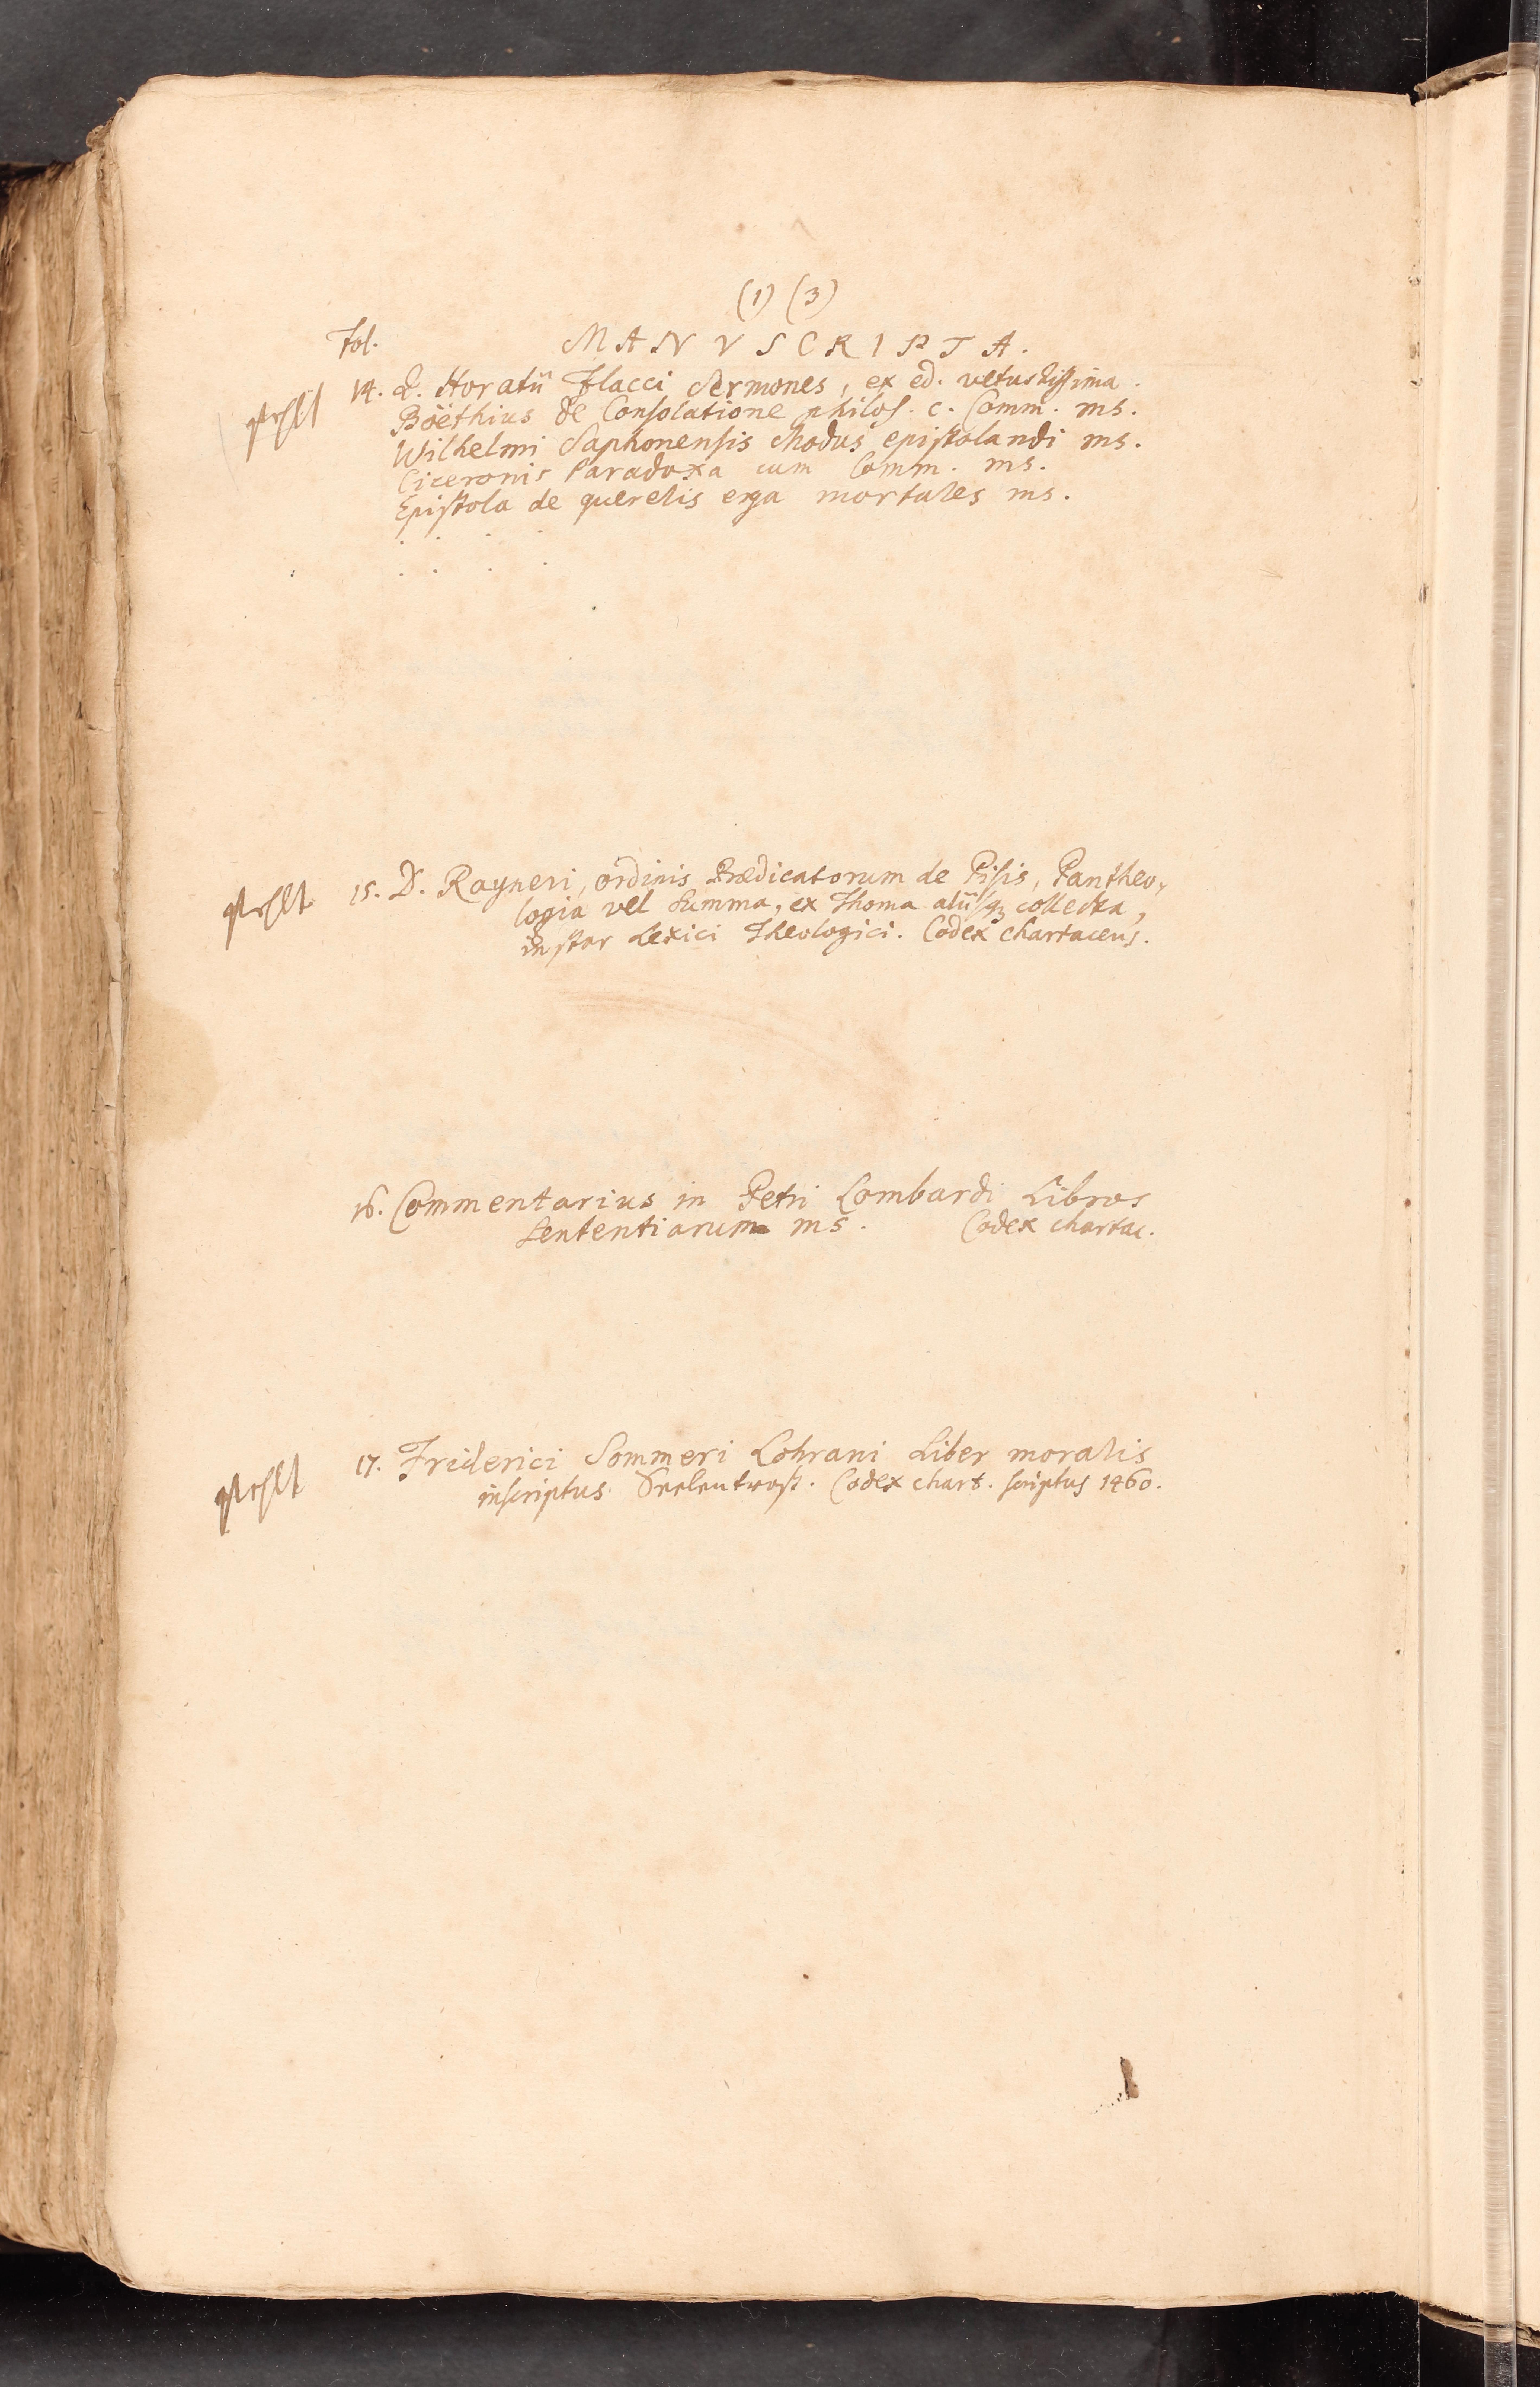 (1) (3)
Fol. MANVSCRIPTA.
14. Q. Horatii Flacci Sermones, ex ed. vetustissima.
fehlt
Boëthius de Consolatione philos. c. Comm. ms.
Wilhelmi Saphonensis Modus epistolandi ms.
Ciceronis Paradoxa cum Comm. ms.
Epistola de querelis erga mortales ms.
. . . .
. . . .
fehlt 15. D. Rayneri, ordinis Prædicatorum de Pisis, Pantheo-
logia vel Summa, ex Thoma aliisq; collecta,
instar Lexici Theologici. Codex chartaceus.
16. Commentarius in Petri Lombardi Libros
Sententiarum ms. Codex chartac.
fehlt 17. Friderici Sommeri Lohrani Liber moralis
inscriptus Seelentrost. Codex chart. scriptus 1460.